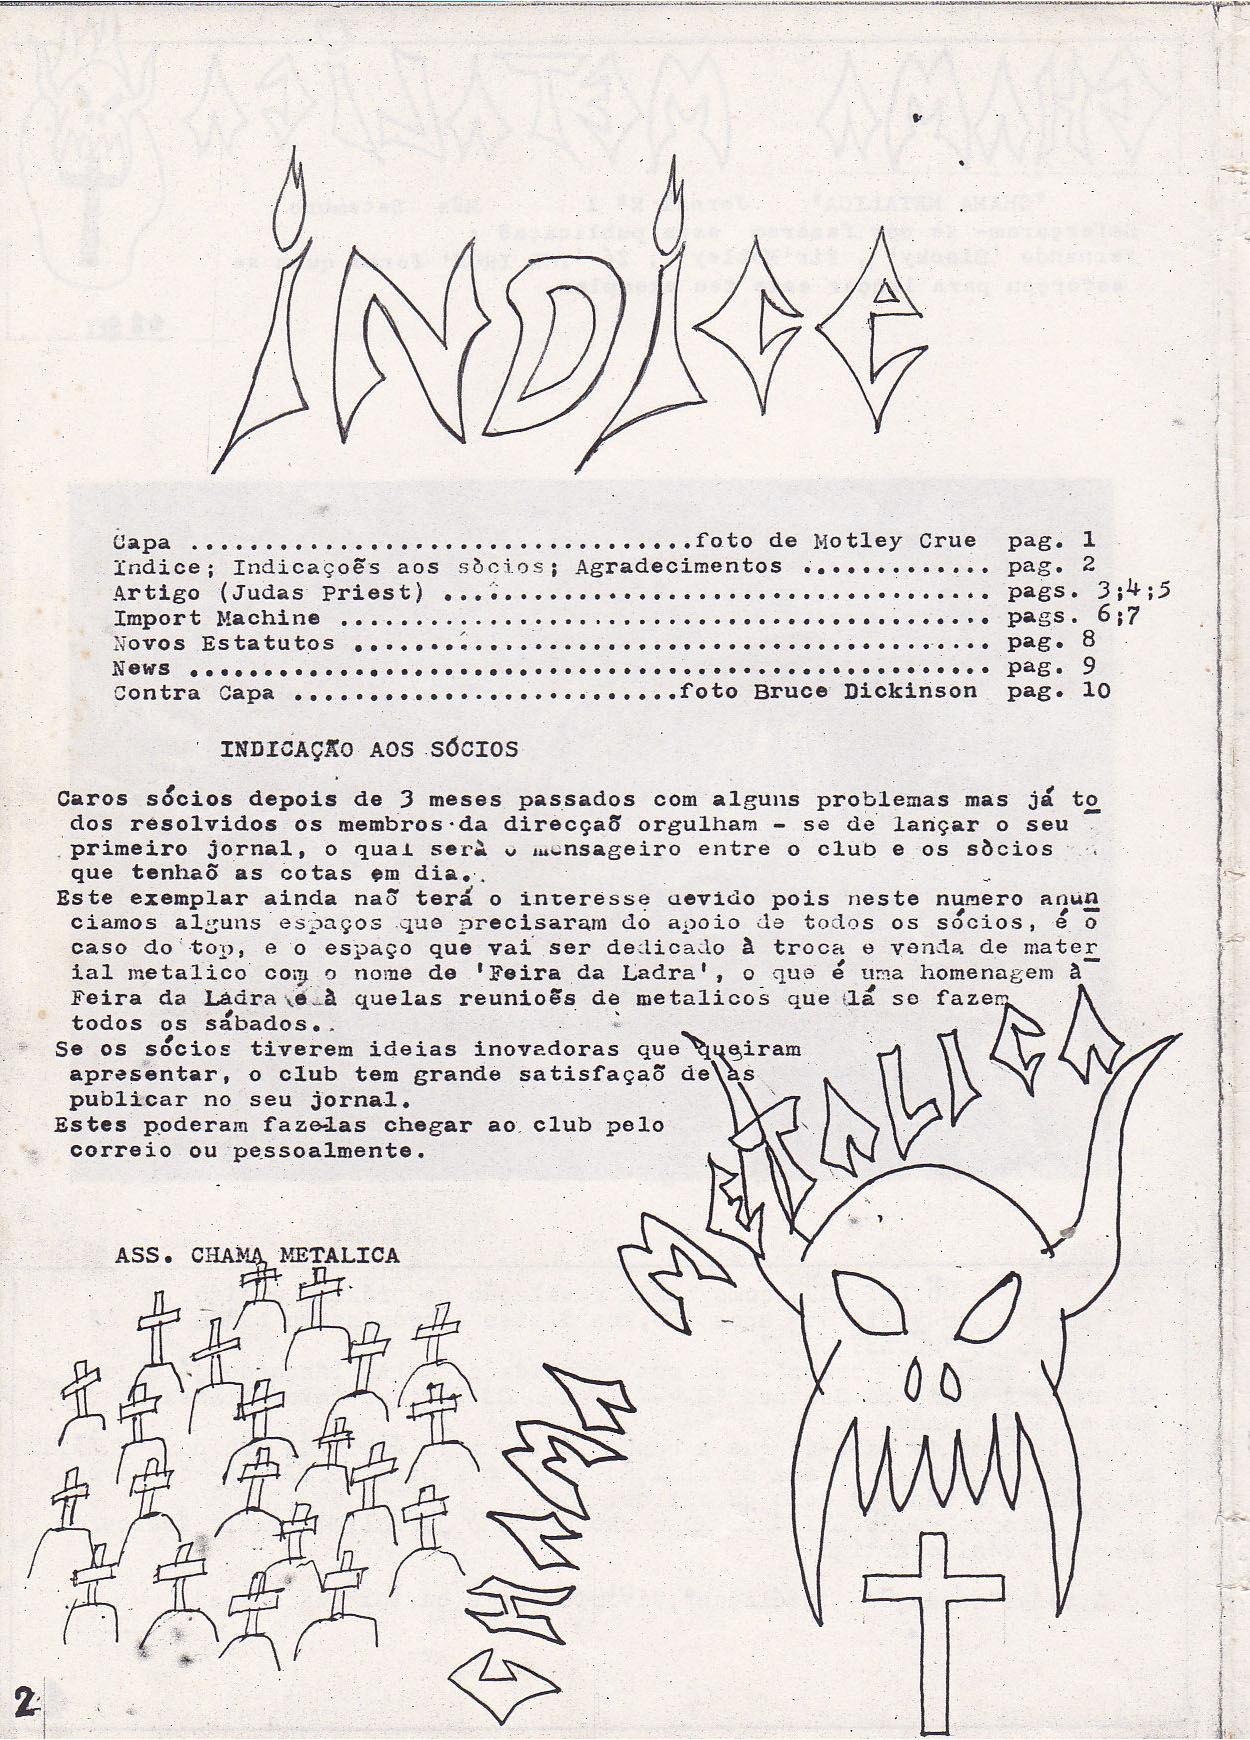 iNDiCe
Capa ..................................foto de Motley Crue pag. 1
Indice; Indicaçoẽs aos sòcios; Agradecimentos ............. pag. 2
Artigo (Judas Priest) ..................................... pags. 3;4;5
Import Machine ............................................ pags. 6;7
Novos Estatutos ........................................... pag. 8
News ...................................................... pag. 9
Contra Capa ..........................foto Bruce Dickinson pag. 10
INDICAÇÃO AOS SÓCIOS
Caros sócios depois de 3 meses passados com alguns problemas mas já to
dos resolvidos os membros da direcçaõ orgulham - se de lançar o seu
primeiro jornal, o qual serà o mensageiro entre o club e os sòcios
que tenhaõ as cotas em dia.
Este exemplar ainda naõ terá o interesse devido pois neste numero anun
ciamos alguns espaços que precisaram do apoio de todos os sócios, é o
caso do top, e o espaço que vai ser dedicado à troca e venda de mater
ial metalico com o nome de 'Feira da Ladra', o que é uma homenagem à
Feira da Ladra e à quelas reunioẽs de metalicos que lá se fazem
todos os sábados..
Se os sócios tiverem ideias inovadoras que queiram
apresentar, o club tem grande satisfaçaõ de as
publicar no seu jornal.
Estes poderam fazelas chegar ao club pelo
correio ou pessoalmente.
ASS. CHAMA METALICA
CHAMA METALICA
2